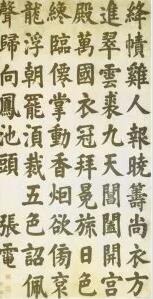 絳幘雞人報曉籌尚衣方
進翠雲裘九天閶闔開宮
殿萬國衣冠拜冕旒日色
終臨僊掌動香烟欲傍衮
龍浮朝罷須裁五色詔佩
聲歸向鳳池頭 張電